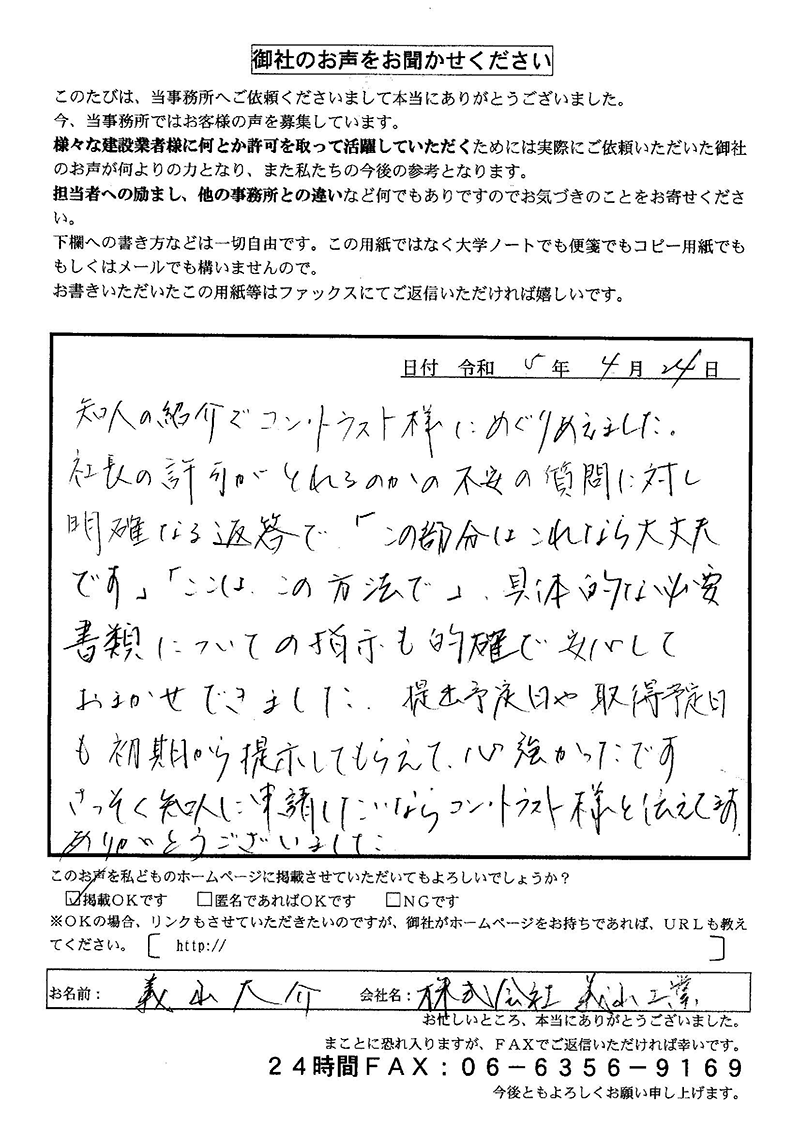 御社のお声をお聞かせください
このたびは、当事務所へご依頼くださいまして本当にありがとうございました。
今、当事務所ではお客様の声を募集しています。
様々な建設業者様に何とか許可を取って活躍していただくためには実際にご依頼いただいた御社
のお声が何よりの力となり、また私たちの今後の参考となります。
担当者への励まし、他の事務所との違いなど何でもありですのでお気づきのことをお寄せくださ
い。
下欄への書き方などは一切自由です。この用紙ではなく大学ノートでも便箋でもコピー用紙でも
もしくはメールでも構いませんので。
お書きいただいたこの用紙等はファックスにてご返信いただければ嬉しいです。
日付 令和 5 年 4 月 24 日
知人の紹介でコントラスト様にめぐりあえました。
社長の許可がとれるのかの不安の質問に対し
明確なる返答で「この部分はこれなら大丈夫
です」「ここは、この方法で」、具体的な必要
書類についての指示も的確で安心して
おまかせできました。提出予定日や取得予定日
も初期から提示してもらえて、心強かったです
さっそく知人に申請したいならコントラスト様と伝えてます
ありがとうございました
このお声を私どものホームページに掲載させていただいてもよろしいでしょうか？
☑掲載ＯＫです □匿名であればＯＫです □ＮＧです
※ＯＫの場合、リンクもさせていただきたいのですが、御社がホームページをお持ちであれば、ＵＲＬも教え
てください。［ http:// ］
お名前： 義山大介 会社名： 株式会社義山工業
お忙しいところ、本当にありがとうございました。
まことに恐れ入りますが、ＦＡＸでご返信いただければ幸いです。
２４時間ＦＡＸ：０６－６３５６－９１６９
今後ともよろしくお願い申し上げます。